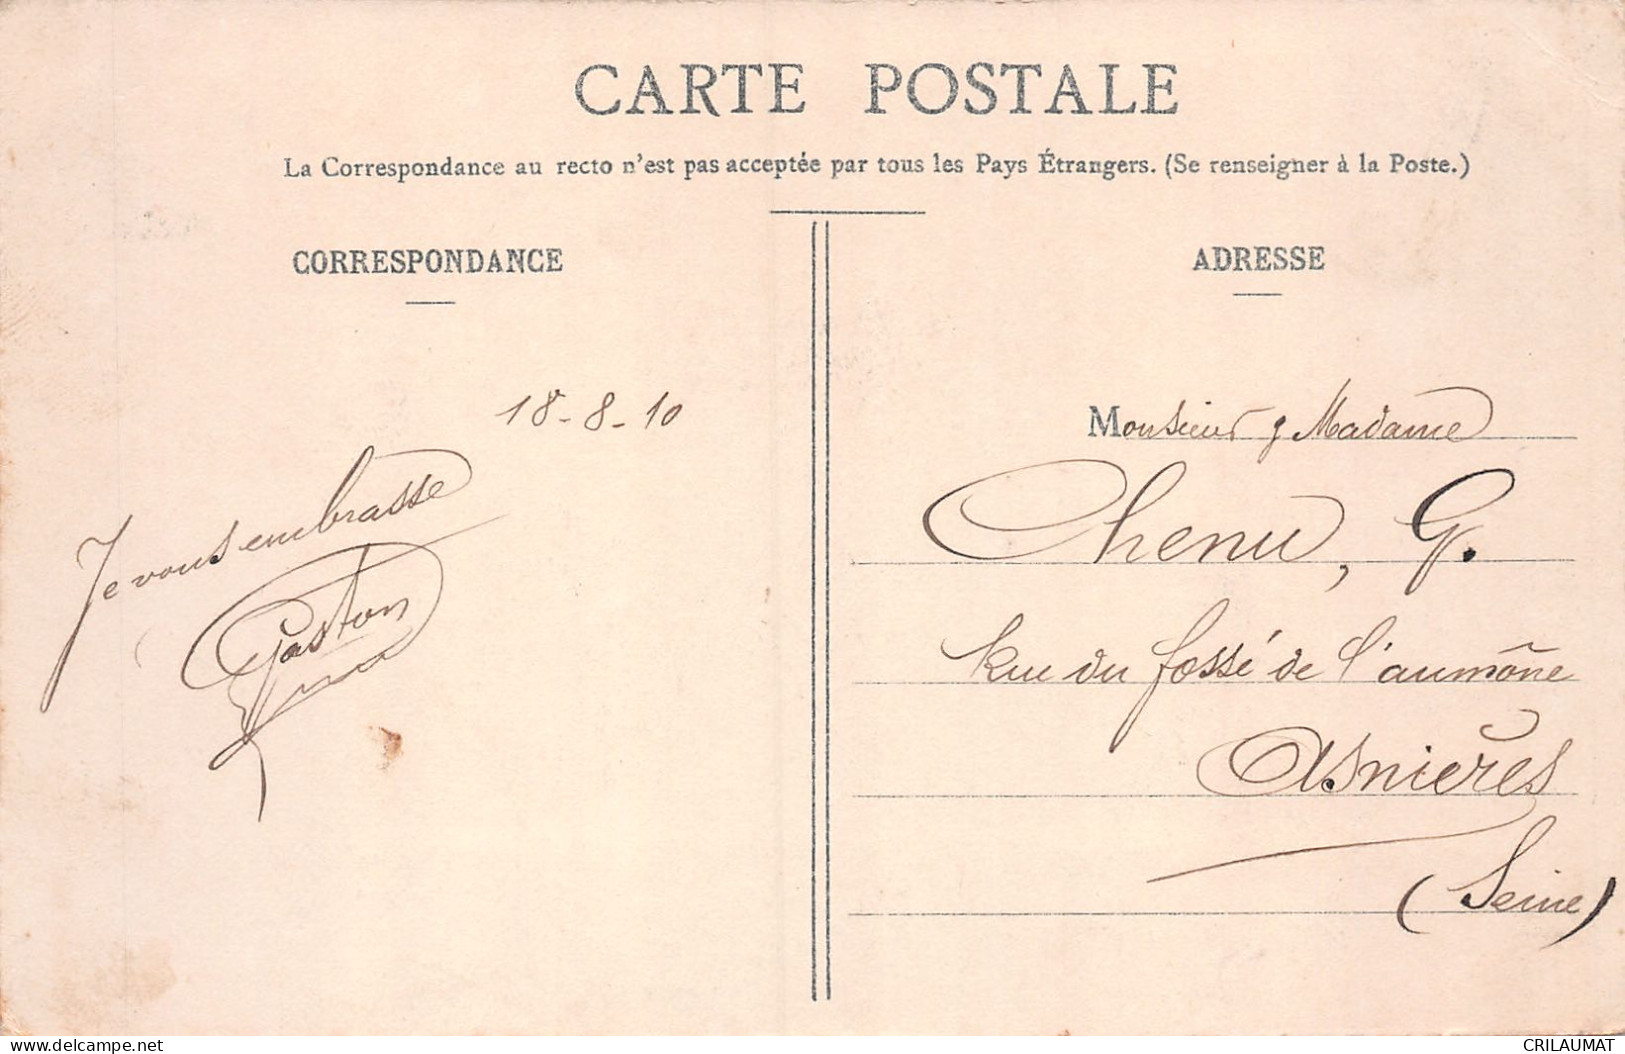 CARTE POSTALE
La Correspondance au recto n'est pas acceptée par tous les Pays Étrangers. (Se renseigner à la Poste.)
CORRESPONDANCE
18-8-10
Je vous embrasse
Gaston
ADRESSE
Monsieur & Madame
Chenu, G.
Rue du fossé de l'aumône
Asnières
(Seine)
www.delcampe.net
CRILAUMAT